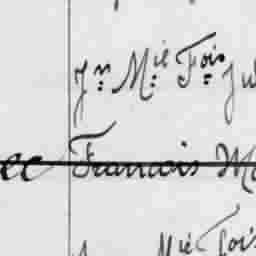 Jn Mie Fois Ju
ec François Ma
Mie Fois